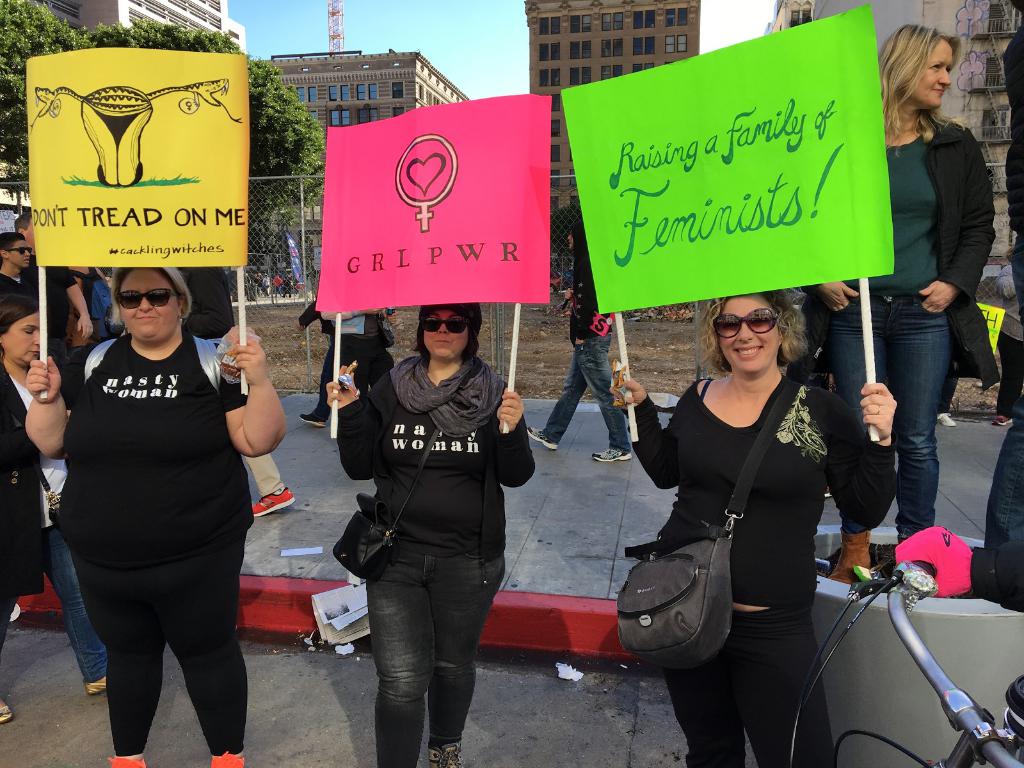 DON'T TREAD ON ME
#cacklingwitches
GRLPWR
Raising a Family of
Feminists!
nasty
woman
nasty
woman